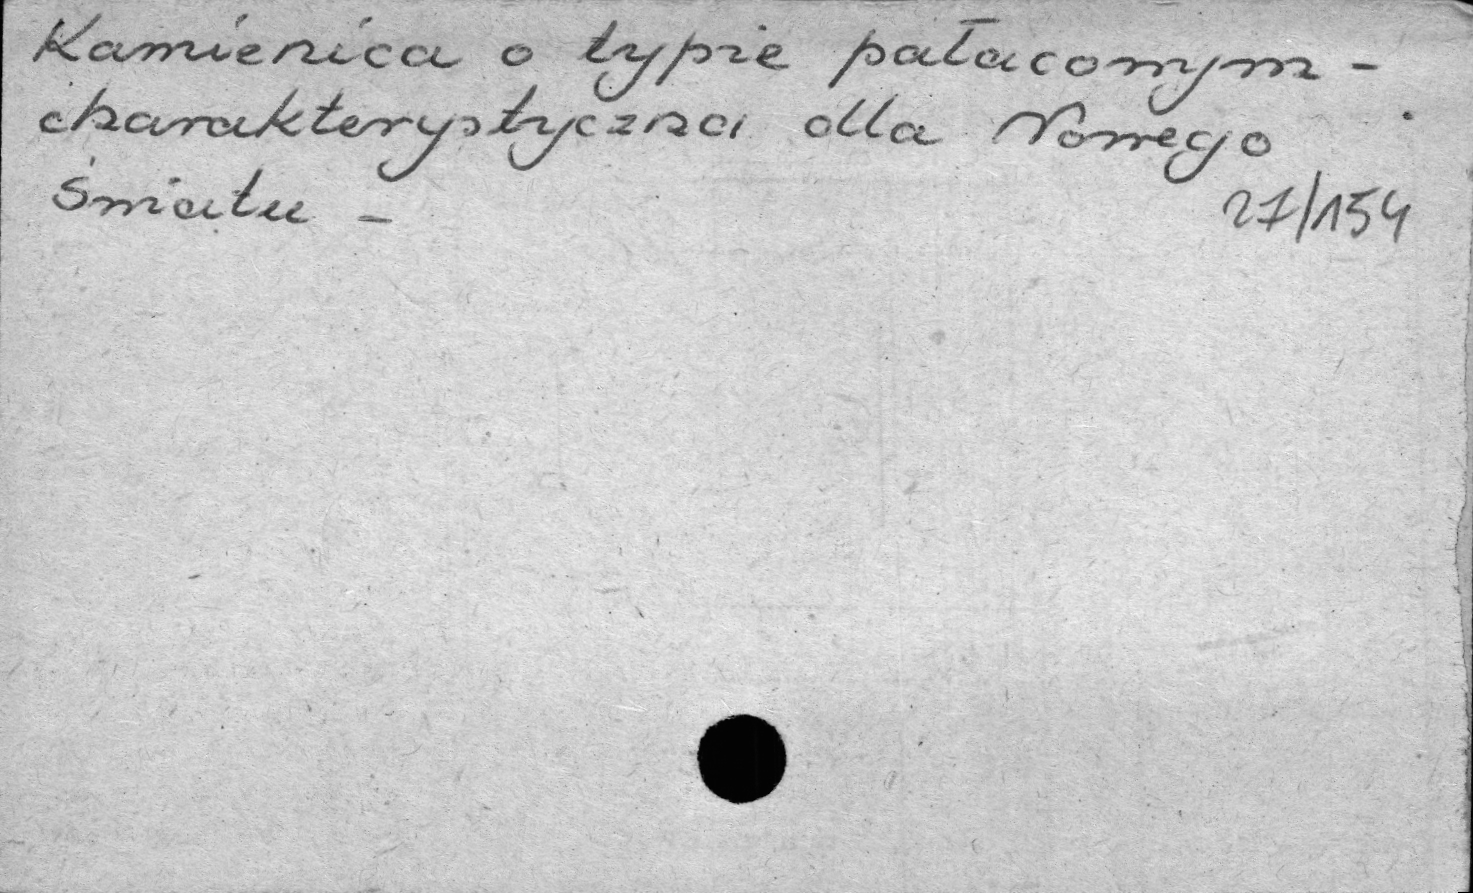 Kamienica o typie pałacowym -
charakterystyczna dla Nowego
Światu -
27/154